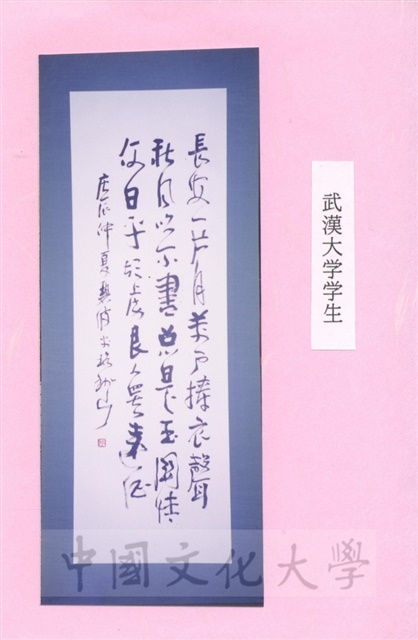 武漢大学学生
長安一片月萬戶擣衣聲
秋風吹不盡總是玉關情
何日平胡虜良人罷遠征
庚辰仲夏
中國文化大學